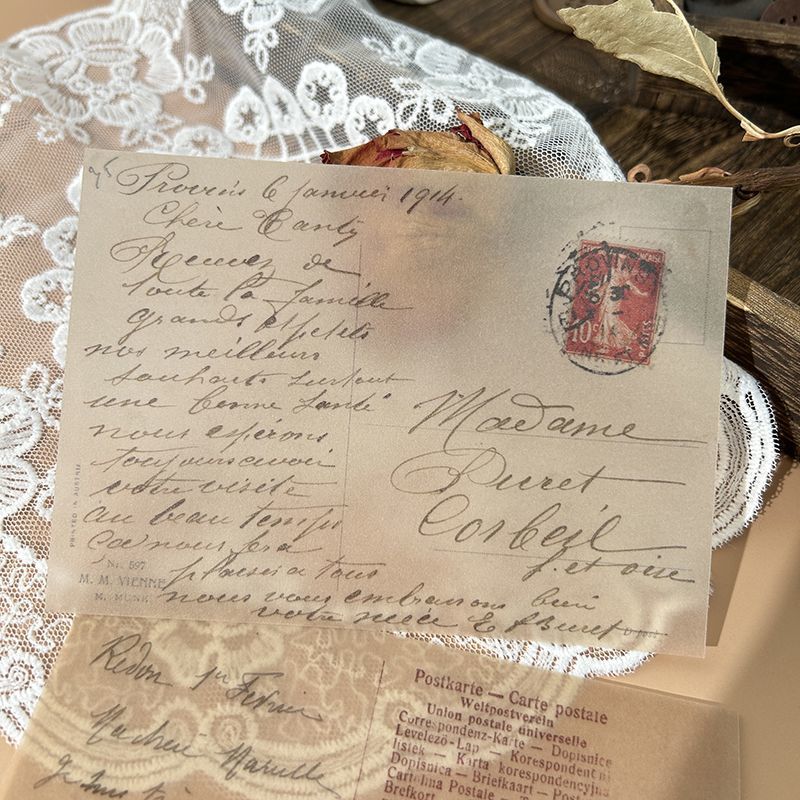 Provins 6 janvier 1914.
Chère Tanty
Recevez de
toute la famille
grands et petits
nos meilleurs
souhaits surtout
une bonne santé
nous espérons
toujours avoir
votre visite
au beau temps
ça nous fera
plaisir a tous
nous vous embrassons bien
votre nièce E Buret
PRINTED IN AUSTRIA
Nr. 597
M. M. VIENNE
M. MUNK
10c
Madame
Buret
Corbeil
S. et oise
Redon 1er Février
Ma chère
Postkarte — Carte postale
Weltpostverein
Union postale universelle
Correspondenz-Karte — Dopisnice
Levelező-Lap — Korespondent
listek — Karta korespondencyjna
Dopisnica — Briefkaart — Post
Cartolina Postale —
Brefkort